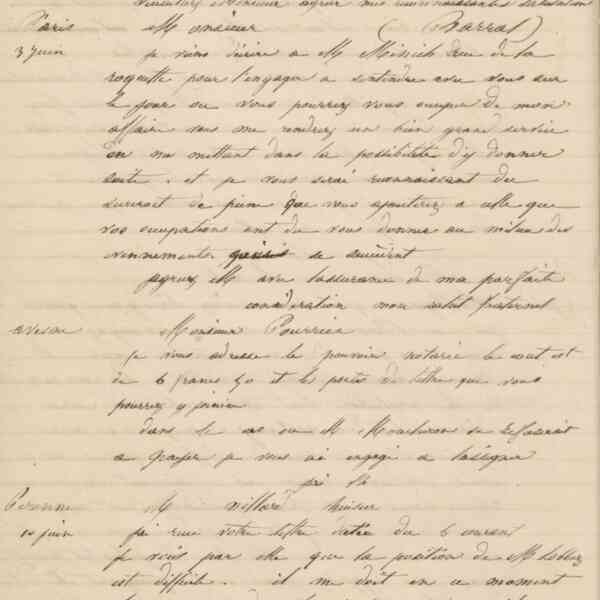 Paris Monsieur (Barral)
3 juin je viens d'écrire a M rue de la
roquette pour l'engager a s'entendre avec vous sur
le jour ou vous pourrez vous occuper de mon
affaire vous me rendrez un bien grand service
en me mettant dans la possibilité d'y donner
suite. et je vous serai reconnaissant du
surcroit de peine que vous ajouterez a celle que
vos occupations ont du vous donner au milieu des
evennements qui se suivent
agreez M avec l'assurance de ma parfaite
consideration mon salut fraternel
Monsieur Pourrier
je vous adresse le pouvoir notarié le cout est
de 6 francs 50 et le porte de lettre que vous
pourrez y joindre
dans le cas ou M se refuserait
a payer je vous ai engagé a l'assigner
Peronne M huissier
10 juin j'ai reçu votre lettre datée du 6 courant
je vois par elle que la position de M
est difficile. il me doit en ce moment